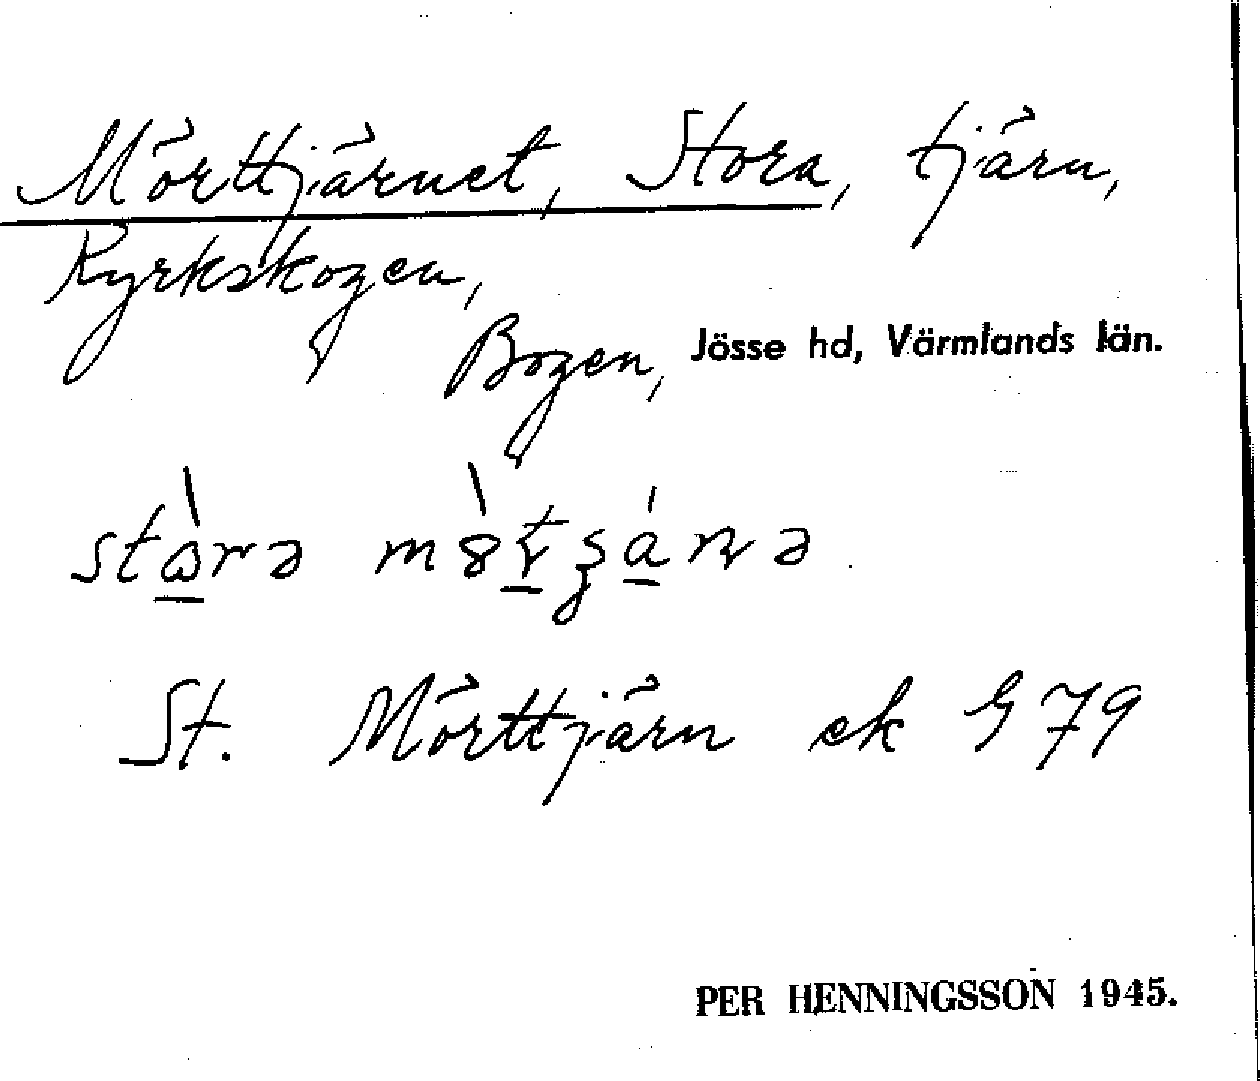 Mörttjärnet, Stora, tjärn,
Kyrkskogen,
Bogen, Jösse hd, Värmlands län.
St. Mörttjärn ek G 79
PER HENNINGSSON 1945.